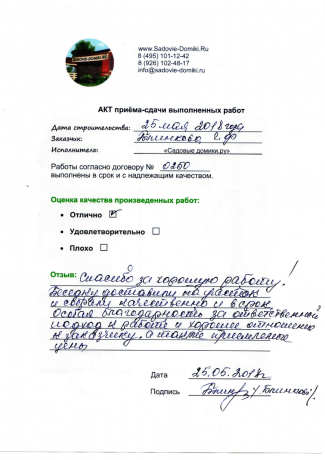 SADOVIE-DOMIKI.RU
www.Sadovie-Domiki.Ru
8 (495) 101-12-42
8 (926) 102-48-17
info@sadovie-domiki.ru
АКТ приёма-сдачи выполненных работ
Дата строительства: 25 мая 2018 года
Заказчик:
Исполнитель: «Садовые домики.ру»
Работы согласно договору № 0260
выполнены в срок и с надлежащим качеством.
Оценка качества произведенных работ:
• Отлично ☑
• Удовлетворительно ☐
• Плохо ☐
Отзыв: Спасибо за хорошую работу!
Беседку доставили на участок
и собрали качественно и в срок.
Особая благодарность за ответственный
подход к работе и хорошее отношение
к заказчику, а также приемлемые
цены
Дата 25.05.2018г.
Подпись